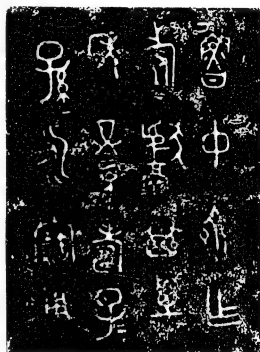 魯中齊乍
旅獻其萬
年眉壽子=
孫=永寶用